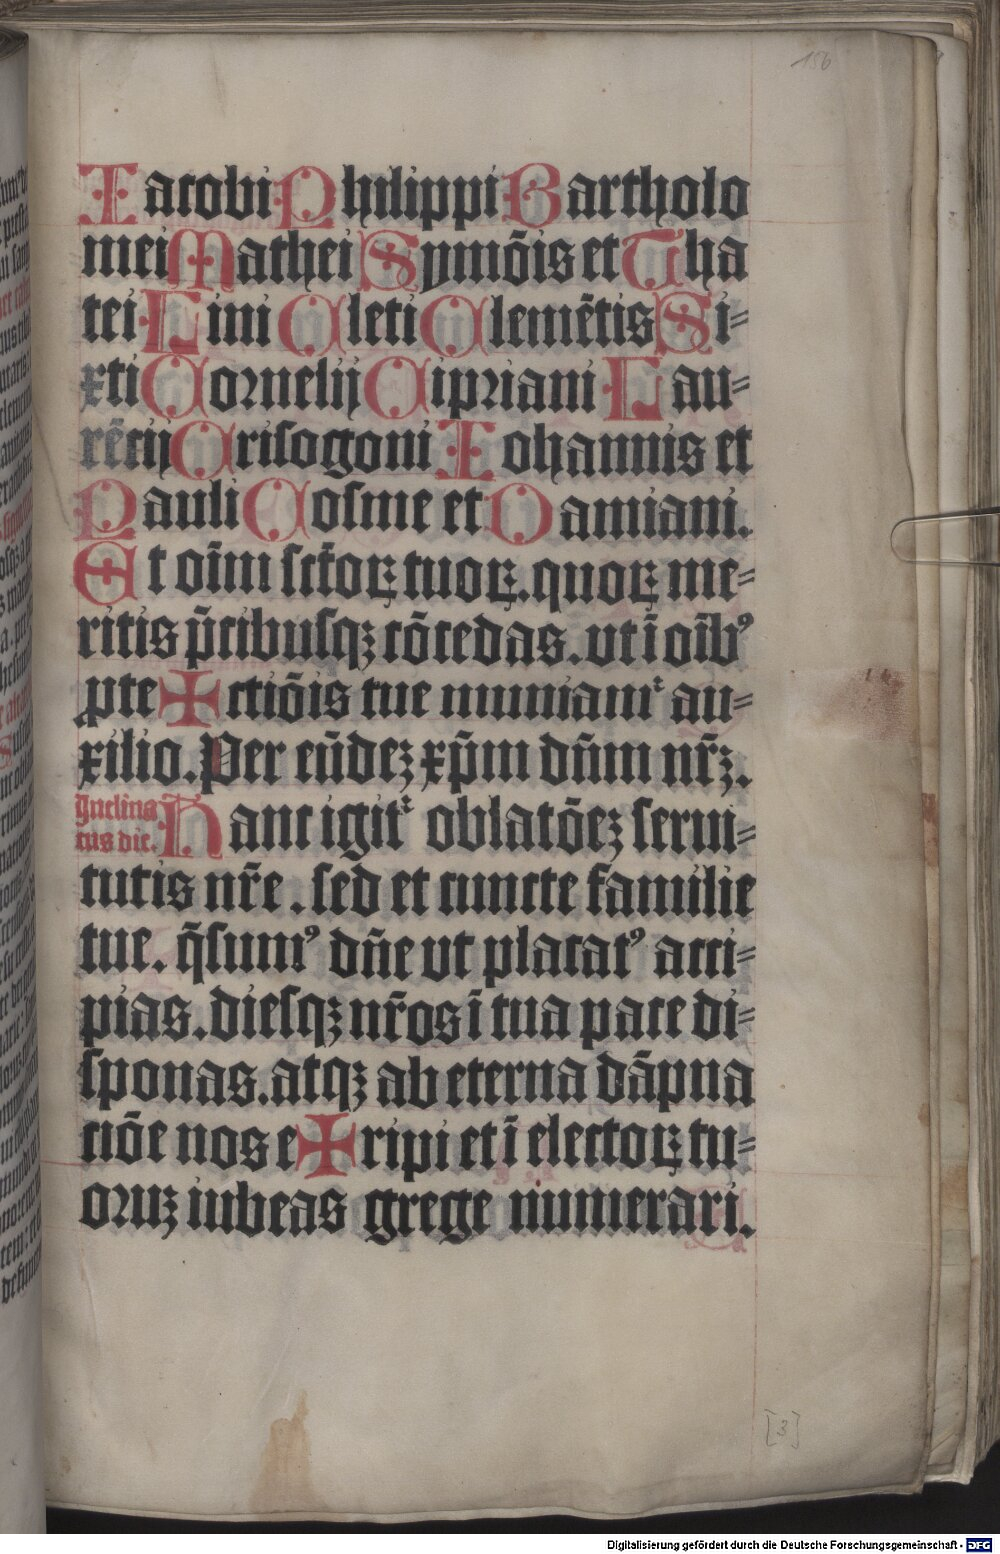 156
Iacobi Philippi Bartholo
mei Mathei Symōis et Tha
tei Lini Cleti Clemētis Si=
xti Cornelij Cipriani Lau=
rēcij Crisogoni Iohannis et
Pauli Cosme et Damiani.
Et oīm sctōꝝ tuoꝝ. quoꝝ me=
ritis p̄cibusqꝫ cōcedas. vt ī oībꝰ
ꝓte✠ctiōis tue muniamᷣ au=
xilio. Per eūdeꝫ xp̄m dn̄m nr̄ꝫ.
Inclina Hanc igitᷣ oblatōeꝫ serui=
tus dic.
tutis nr̄e. sed et cuncte familie
tue. q̄sumꝰ dn̄e vt placatꝰ acci=
pias. diesqꝫ nr̄os ī tua pace di=
sponas. atqꝫ ab eterna dāpna
ciōe nos e✠ripi et ī electoꝝ tu=
oruꝫ iubeas grege numerari.
[3]
Digitalisierung gefördert durch die Deutsche Forschungsgemeinschaft - DFG